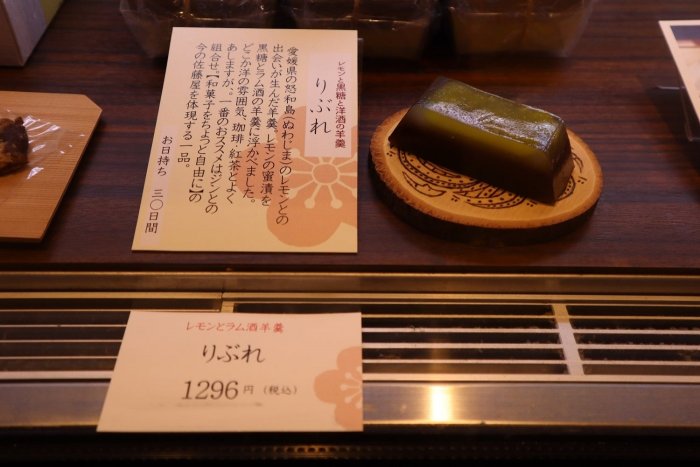 レモンと黒糖と洋酒の羊羹
りぶれ
愛媛県の怒和島(ぬわじま)のレモンとの
出会いが生んだ羊羹。レモンの蜜漬を
黒糖とラム酒の羊羹に浮かべました。
どこか洋の雰囲気、珈琲・紅茶とよく
あいますが、一番のおススメはジンとの
組合せ。【和菓子をちょっと自由に】の
今の佐藤屋を体現する一品。
お日持ち 三〇日間
レモンとラム酒羊羹
りぶれ
1296円(税込)